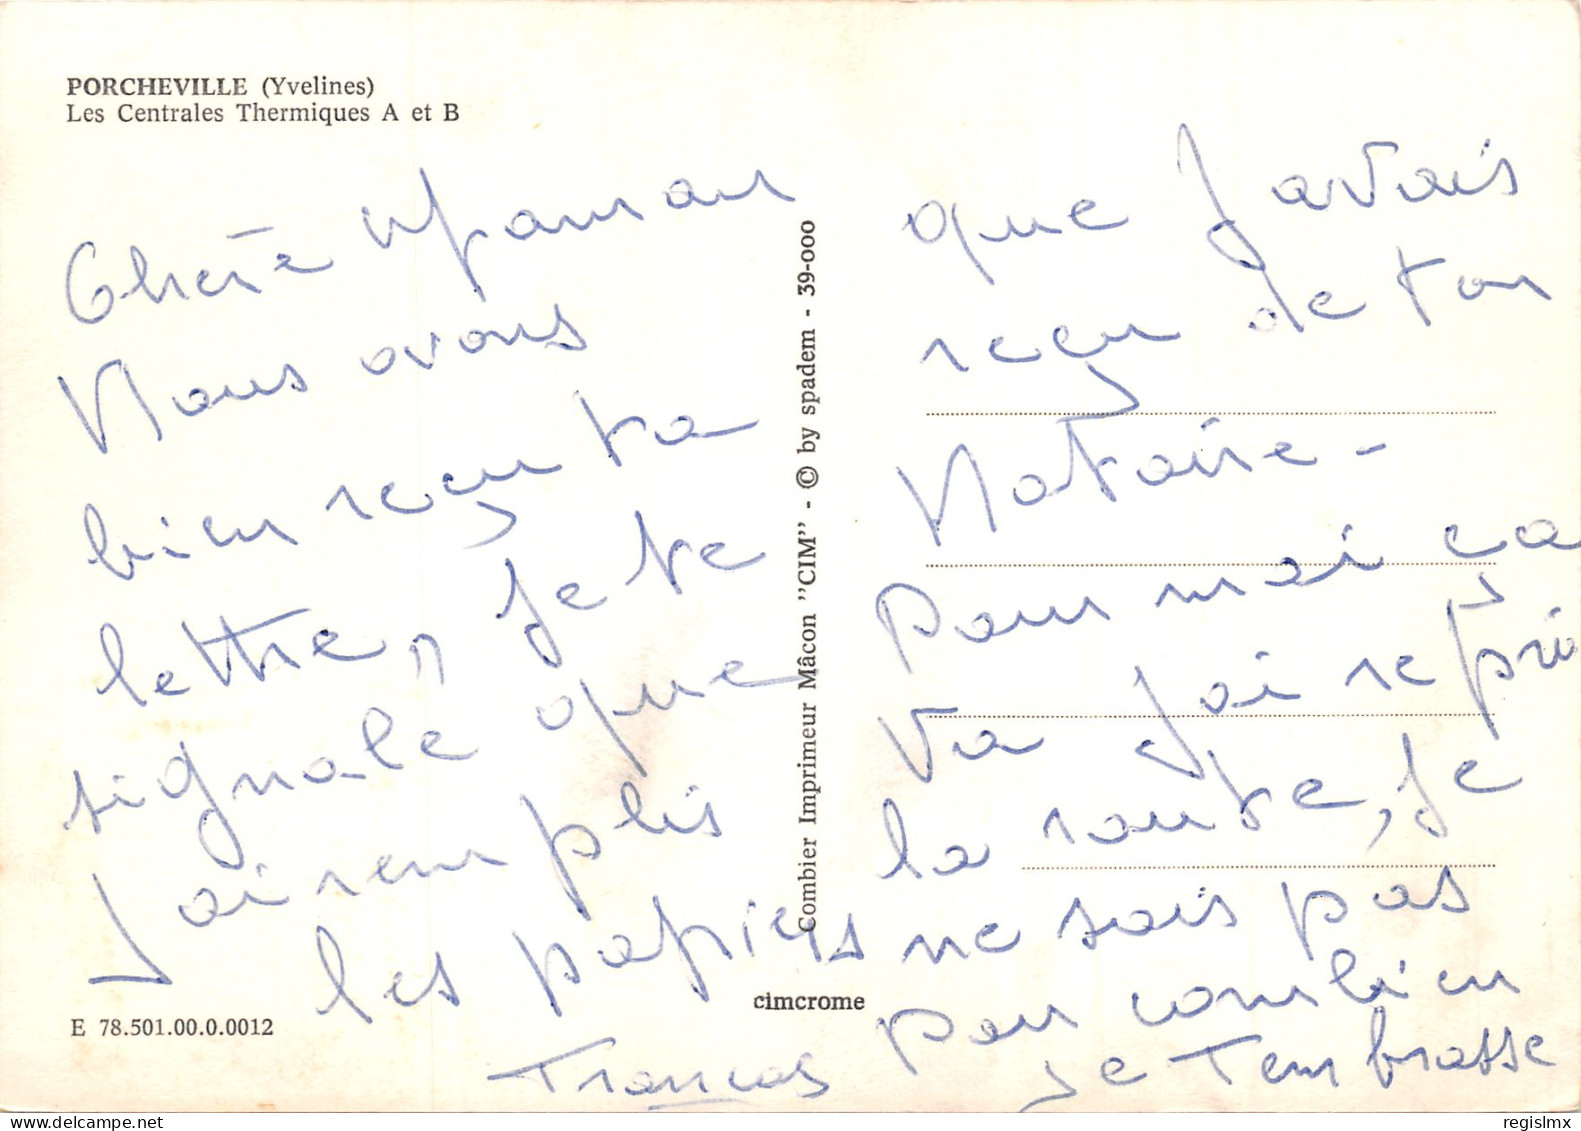 PORCHEVILLE (Yvelines)
Les Centrales Thermiques A et B
Chère Maman
Nous avons
bien reçu ta
lettre, je te
signale que
J'ai remplis
les papiers
que J'avais
reçu de ton
Notaire -
Pour moi ça
va j'ai repris
la route, je
ne sais pas
pour combien
Je T'embrasse
Francas
Combier Imprimeur Mâcon "CIM" - © by spadem - 39-000
cimcrome
E 78.501.00.0.0012
regislmx